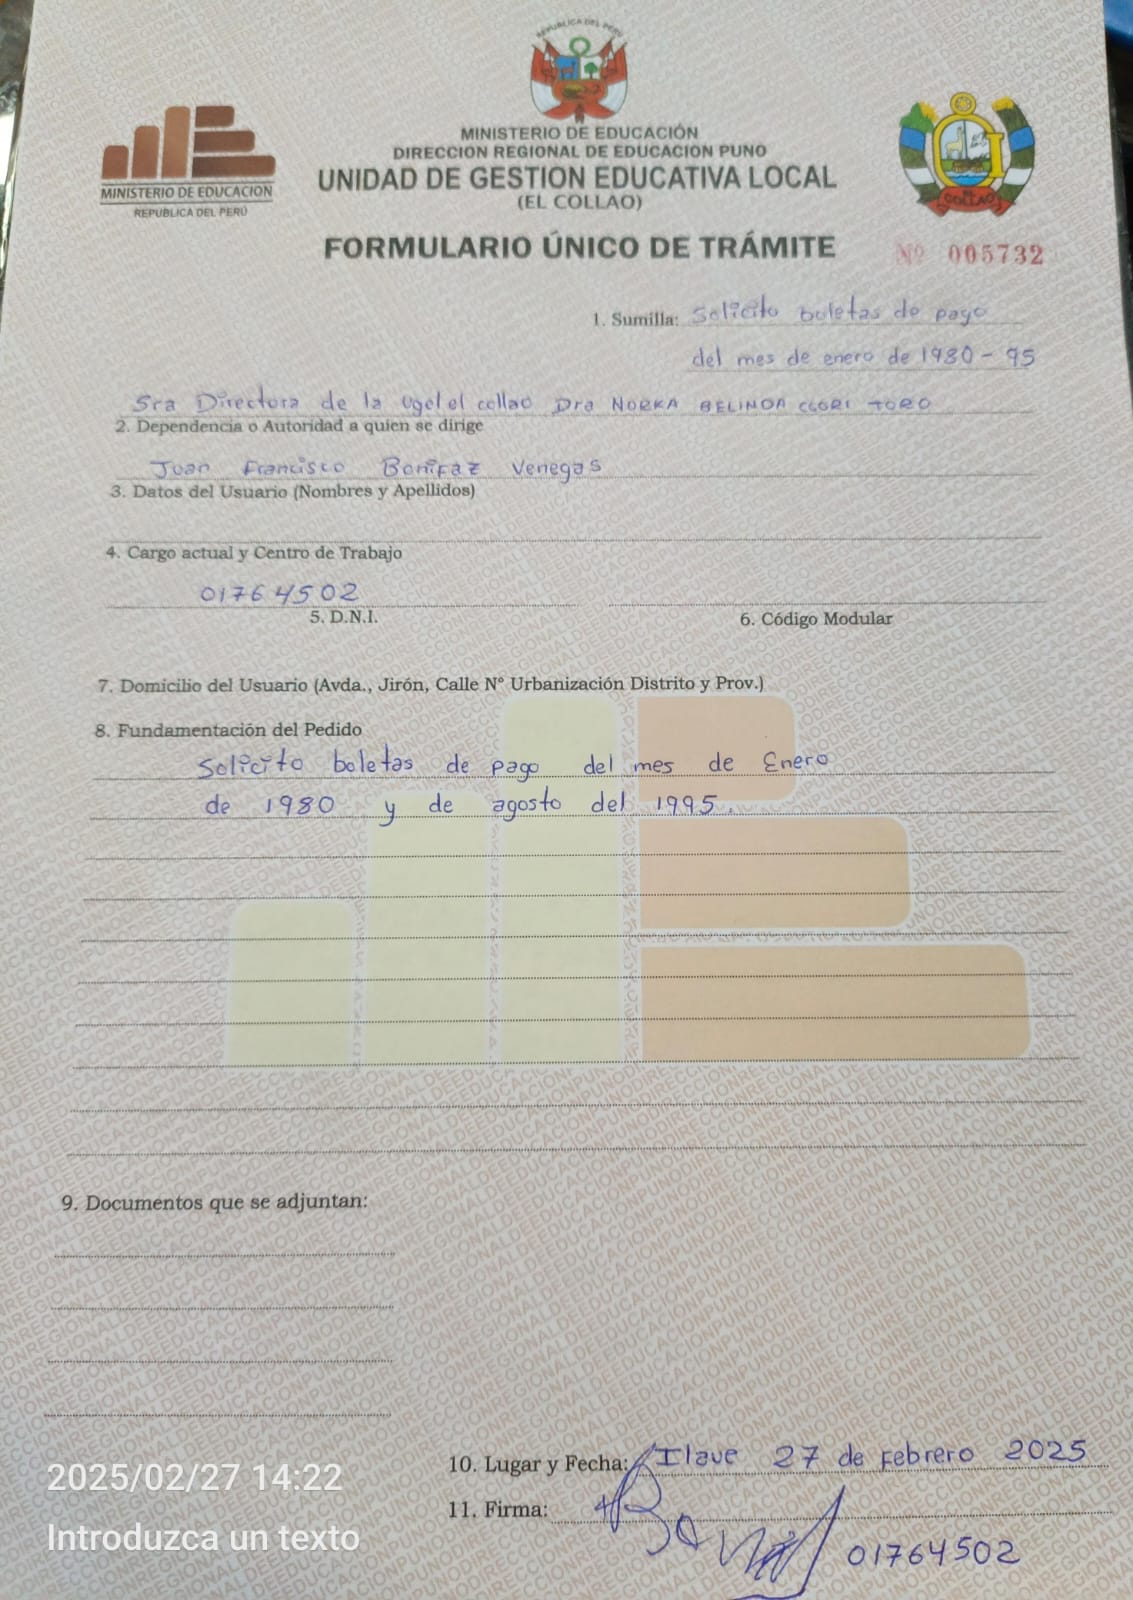 REPUBLICA DEL PERU
MINISTERIO DE EDUCACION
REPUBLICA DEL PERÚ
MINISTERIO DE EDUCACIÓN
DIRECCION REGIONAL DE EDUCACION PUNO
UNIDAD DE GESTION EDUCATIVA LOCAL
(EL COLLAO)
EL COLLAO
FORMULARIO ÚNICO DE TRÁMITE
Nº 005732
1. Sumilla: Solicito boletas de pago
del mes de enero de 1980 - 95
Sra Directora de la Ugel el collao Dra NORKA BELINDA CCORI TORO
2. Dependencia o Autoridad a quien se dirige
Juan Francisco Bonifaz Venegas
3. Datos del Usuario (Nombres y Apellidos)
4. Cargo actual y Centro de Trabajo
01764502
5. D.N.I.
6. Código Modular
7. Domicilio del Usuario (Avda., Jirón, Calle N° Urbanización Distrito y Prov.)
8. Fundamentación del Pedido
Solicito boletas de pago del mes de Enero
de 1980 y de agosto del 1995.
9. Documentos que se adjuntan:
10. Lugar y Fecha: Ilave 27 de febrero 2025
11. Firma:
01764502
2025/02/27 14:22
Introduzca un texto